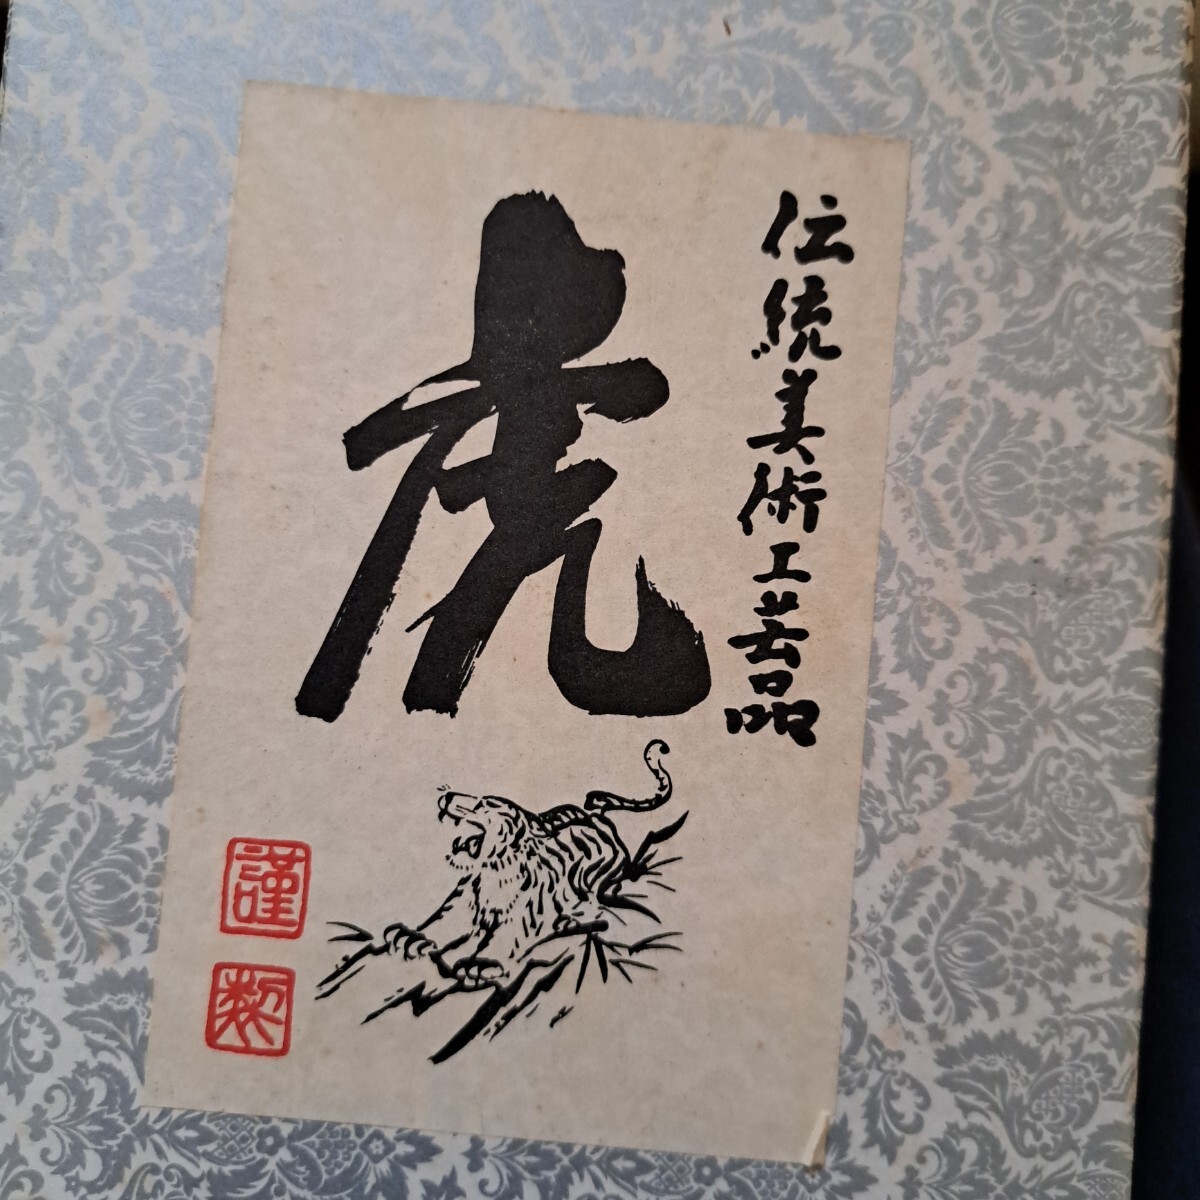 伝統美術工芸品
虎
謹
製